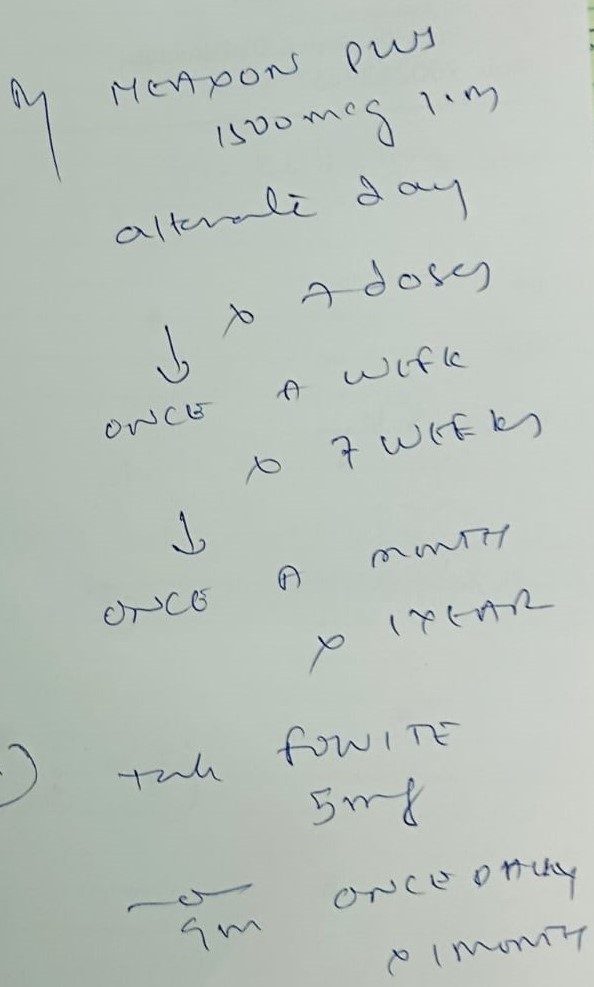 MEAXON PLUS
1500 mcg I.M
alternate day
x 7 doses
↓
ONCE A WEEK
x 7 WEEKS
↓
ONCE A MONTH
x 1 YEAR
tab FOLVITE
5 mg
ONCE DAILY
x 1 MONTH